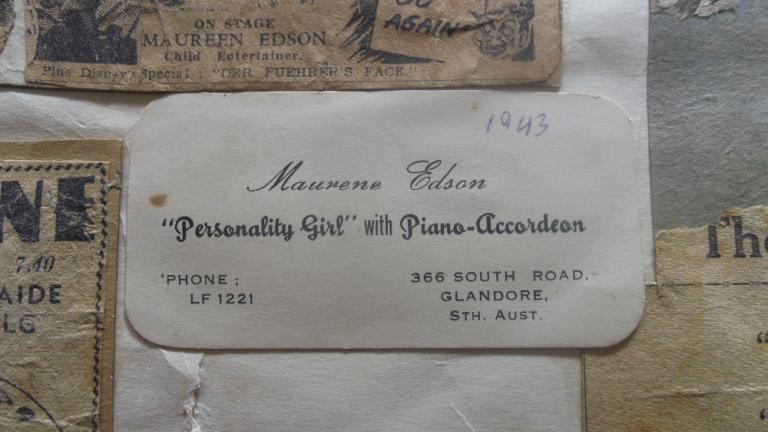 GO
AGAIN
ON STAGE
MAUREEN EDSON
Child Entertainer.
Plus Disney's Special : "DER FUEHRER'S FACE."
1943
Maurene Edson
"Personality Girl" with Piano-Accordeon
'PHONE :
LF 1221
366 SOUTH ROAD,
GLANDORE,
STH. AUST.
NE
7.40
AIDE
LG
The